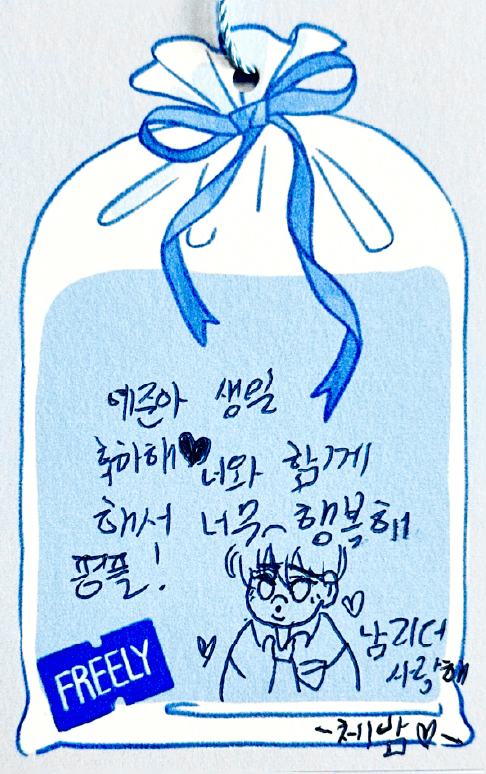 예준아 생일
축하해♥너와 함께
해서 너무 행복해
평플!
남리더
사랑해
FREELY
-체밤♡-